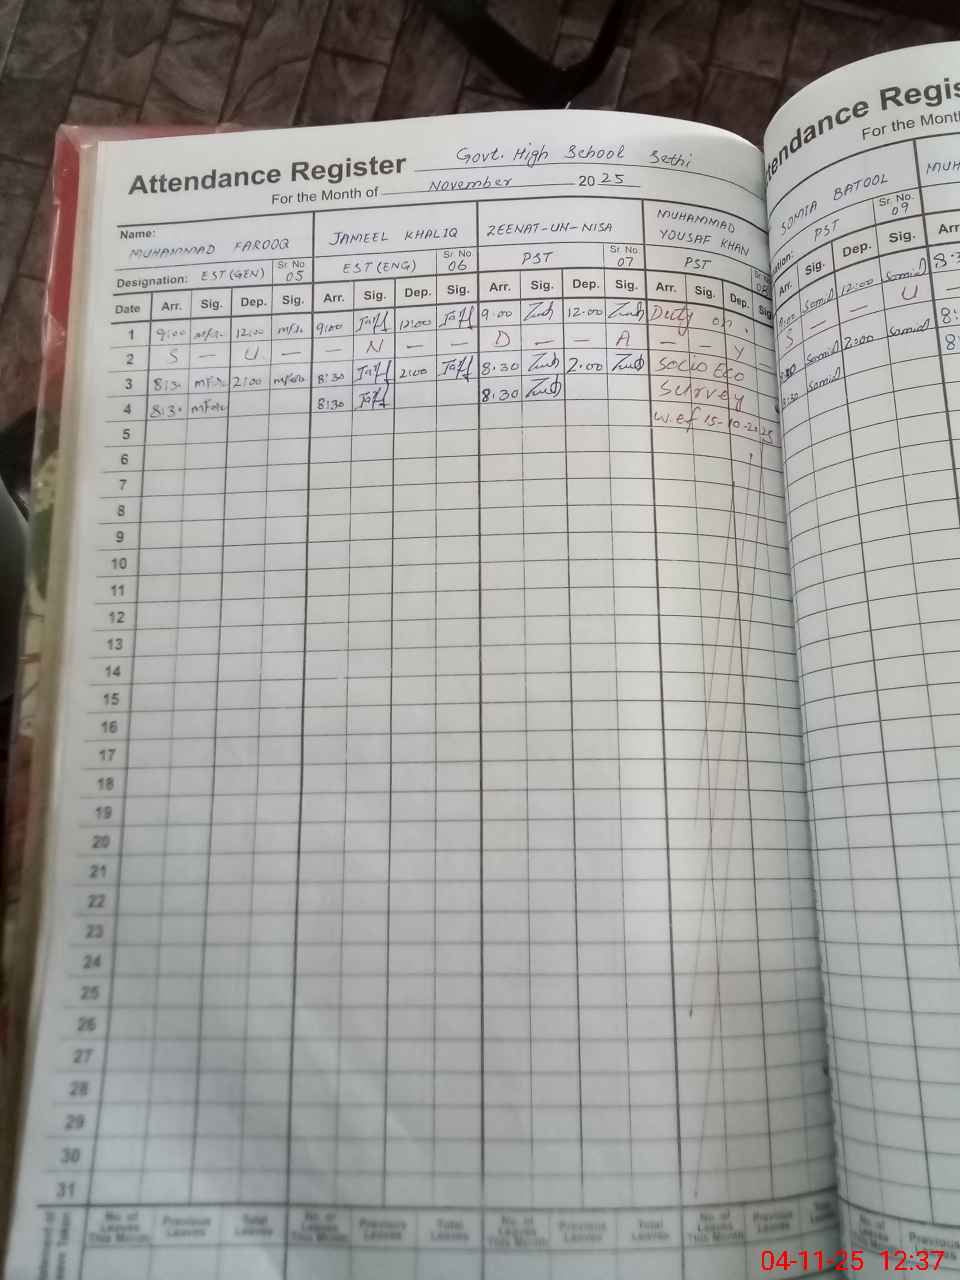 Attendance Register Govt. High School Sethi
For the Month of November 2025
Name:
MUHAMMAD FAROOQ JAMEEL KHALIQ ZEENAT-UN-NISA MUHAMMAD YOUSAF KHAN
Designation: EST(GEN) Sr. No 05 EST(ENG) Sr. No. 06 PST Sr. No. 07 PST
Date Arr. Sig. Dep. Sig. Arr. Sig. Dep. Sig. Arr. Sig. Dep. Sig. Arr. Sig. Dep. Sig
1 9:00 12:00 9:00 12:00 9.00 12.00 Duty on
2 S — U — — N — — D — — A — — Y —
3 8:30 2:00 8:30 2:00 8.30 2.00 Socio Eco
4 8:30 8:30 8.30 Survey
5 w.ef 15-10-2025
6
7
8
9
10
11
12
13
14
15
16
17
18
19
20
21
22
23
24
25
26
27
28
29
30
31
No. of Leaves This Month Previous Leaves Total Leaves No. of Leaves This Month Previous Leaves Total Leaves No. of Leaves This Month Previous Leaves Total Leaves No. of Leaves This Month Previous Leaves Total Leaves
Attendance Regis
For the Month
SOMIA BATOOL MUH
PST Sr. No. 09
Arr. Sig. Dep. Sig. Arr
9:00 12:00 8:3
S — — U —
8:30 2:00 8:
8:30 8
No. of Leaves This Month Previous Leaves
04-11-25 12:37